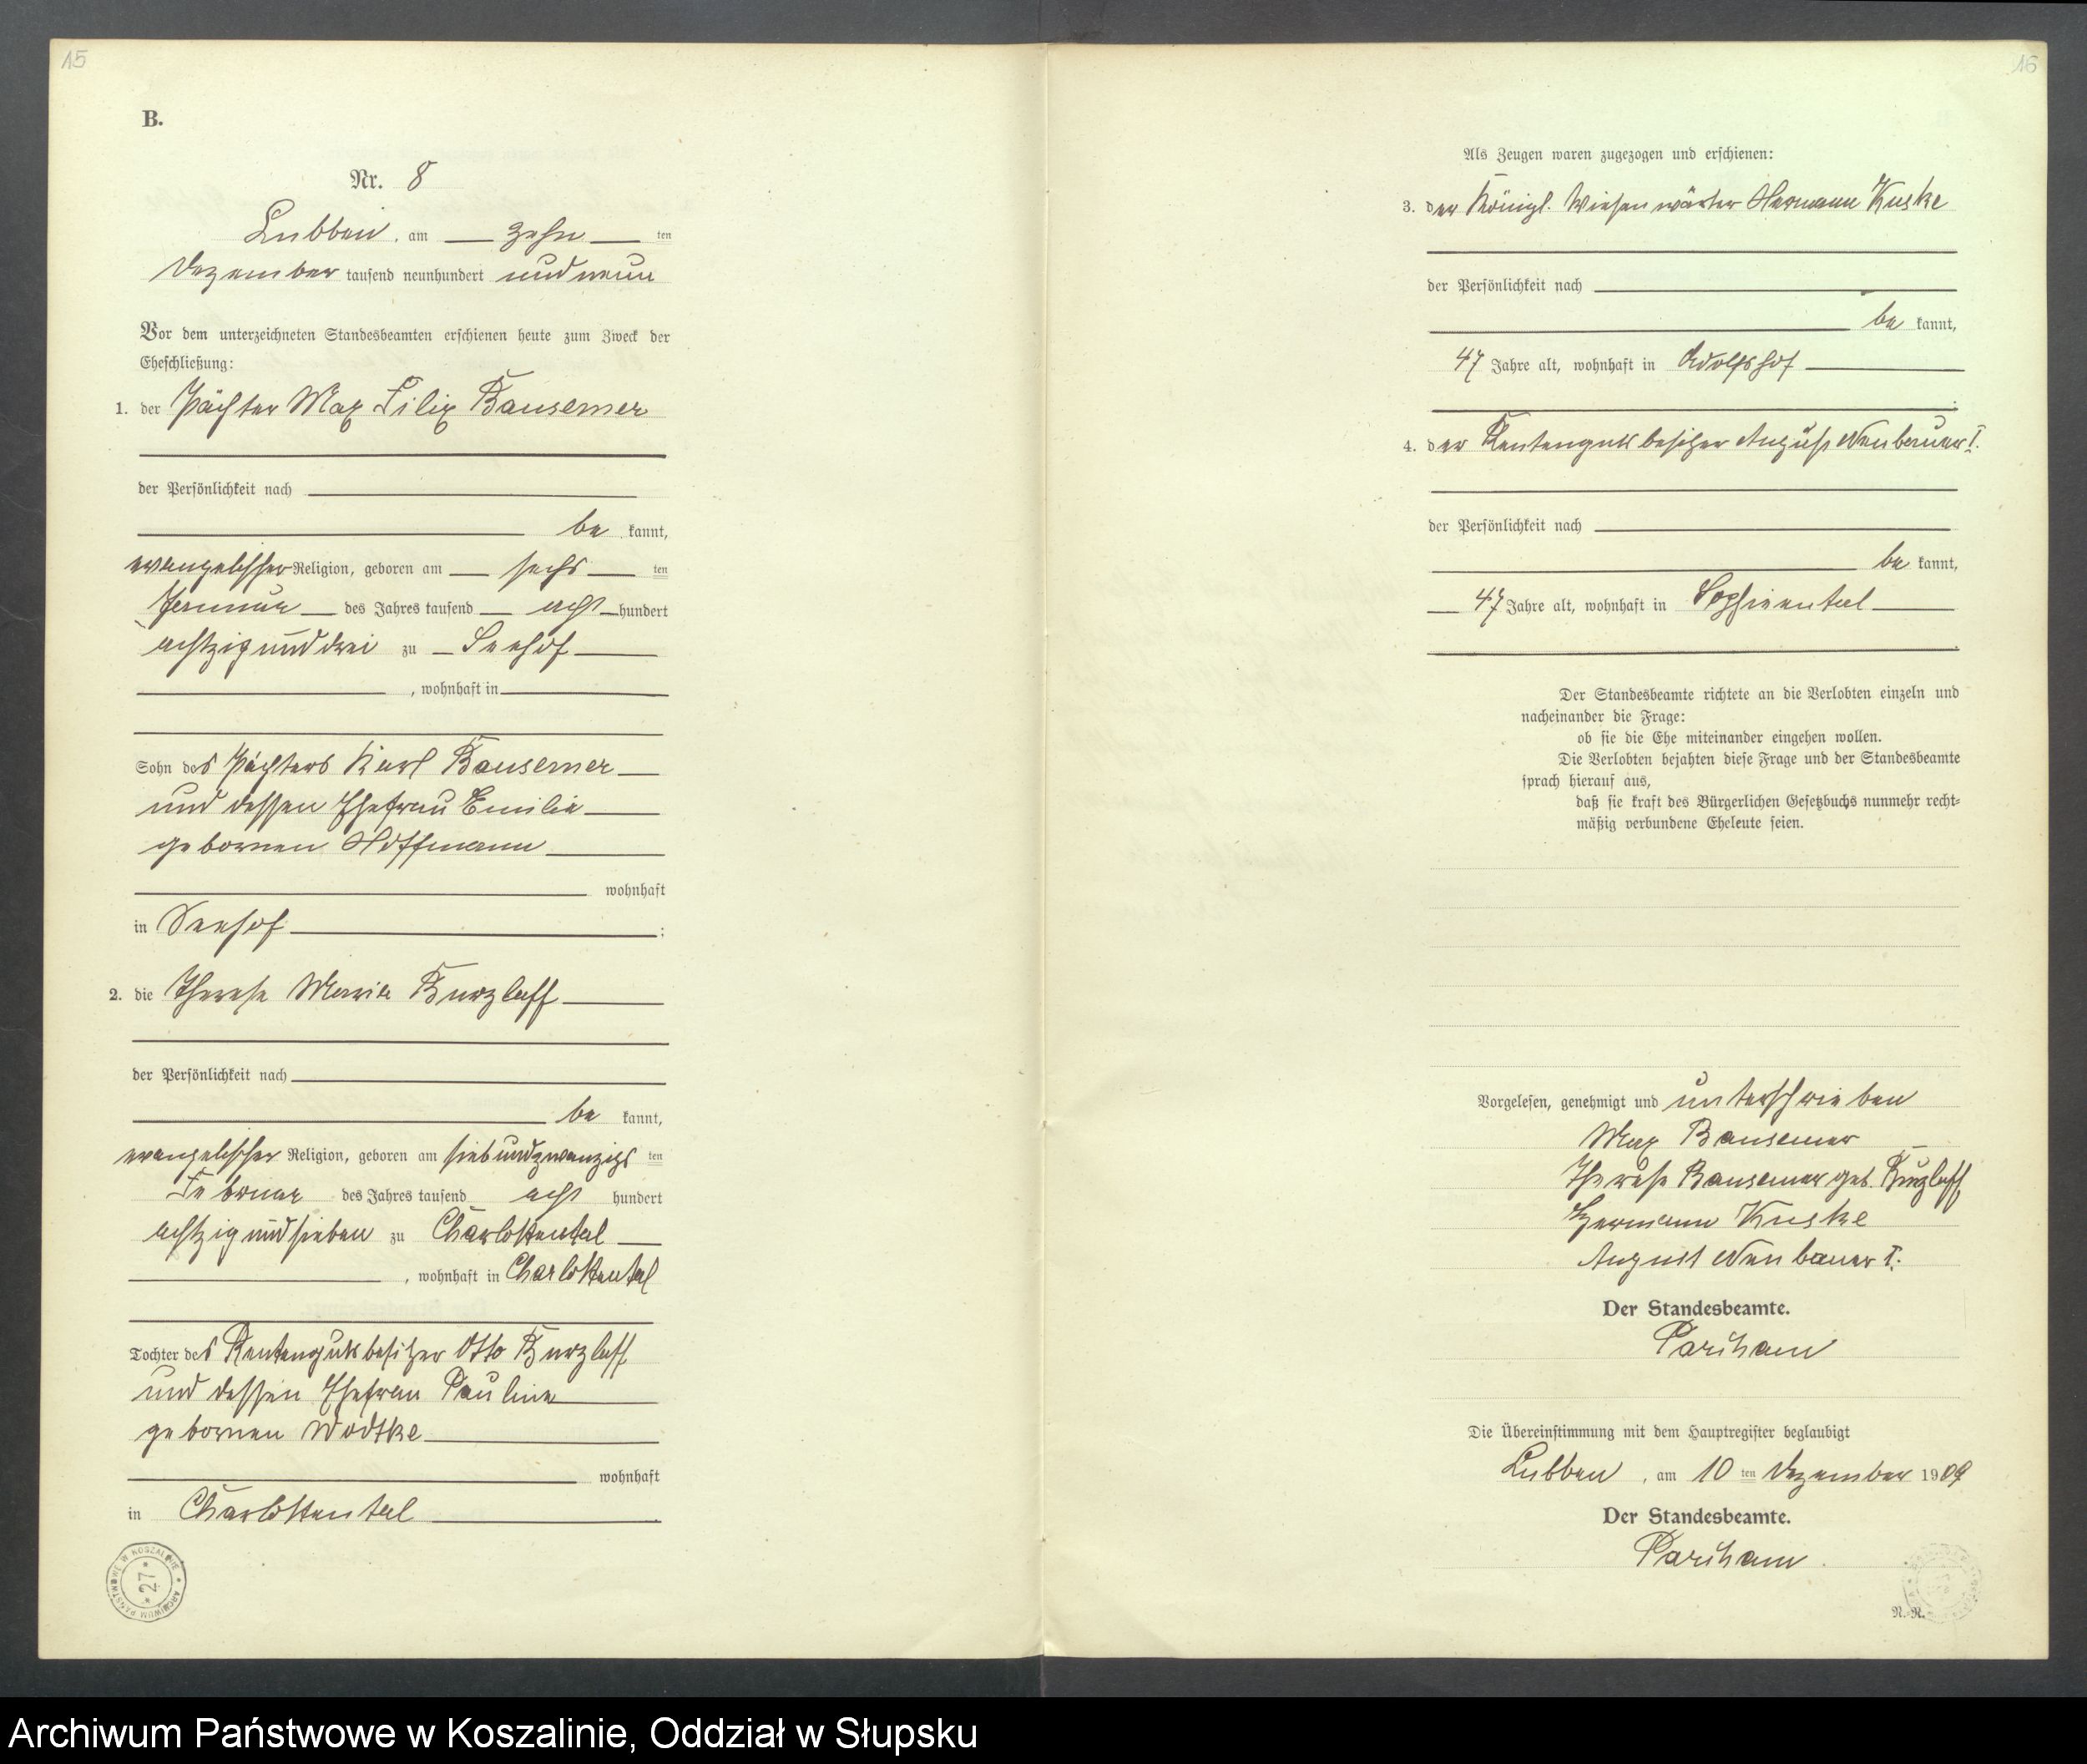 15
B.
Nr. 8
Lubben, am zehn ten
Dezember tausend neunhundert und neun
Vor dem unterzeichneten Standesbeamten erschienen heute zum Zweck der
Eheschließung:
1. der Pächter Max Felix Bansemer
der Persönlichkeit nach
be kannt,
evangelischer Religion, geboren am sechs ten
Januar des Jahres tausend acht hundert
achtzig und drei zu Seehof
, wohnhaft in
Sohn des Pächters Karl Bansemer
und dessen Ehefrau Emilie
gebornen Hoffmann
wohnhaft
in Seehof ;
2. die Therese Marie Kurzlaff
der Persönlichkeit nach
be kannt,
evangelischer Religion, geboren am siebundzwanzigs ten
Februar des Jahres tausend acht hundert
achtzig und sieben zu Charlottental
, wohnhaft in Charlottental
Tochter des Rentengutsbesitzer Otto Kurzlaff
und dessen Ehefrau Pauline
gebornen Wodtke
wohnhaft
in Charlottental
ARCHIWUM PAŃSTWOWE W KOSZALINIE * 27 *
16
Als Zeugen waren zugezogen und erschienen:
3. der Königl. Wiesenwärter Hermann Kuske
der Persönlichkeit nach
be kannt,
47 Jahre alt, wohnhaft in Adolfshof
4. der Rentengutsbesitzer August Neubauer I.
der Persönlichkeit nach
be kannt,
47 Jahre alt, wohnhaft in Sophiental
Der Standesbeamte richtete an die Verlobten einzeln und
nacheinander die Frage:
ob sie die Ehe miteinander eingehen wollen.
Die Verlobten bejahten diese Frage und der Standesbeamte
sprach hierauf aus,
daß sie kraft des Bürgerlichen Gesetzbuchs nunmehr recht=
mäßig verbundene Eheleute seien.
Vorgelesen, genehmigt und unterschrieben
Max Bansemer
Therese Bansemer geb. Kurzlaff
Hermann Kuske
August Neubauer I.
Der Standesbeamte.
Die Übereinstimmung mit dem Hauptregister beglaubigt
Lubben, am 10 ten Dezember 1909
Der Standesbeamte.
N. N.
Archiwum Państwowe w Koszalinie, Oddział w Słupsku